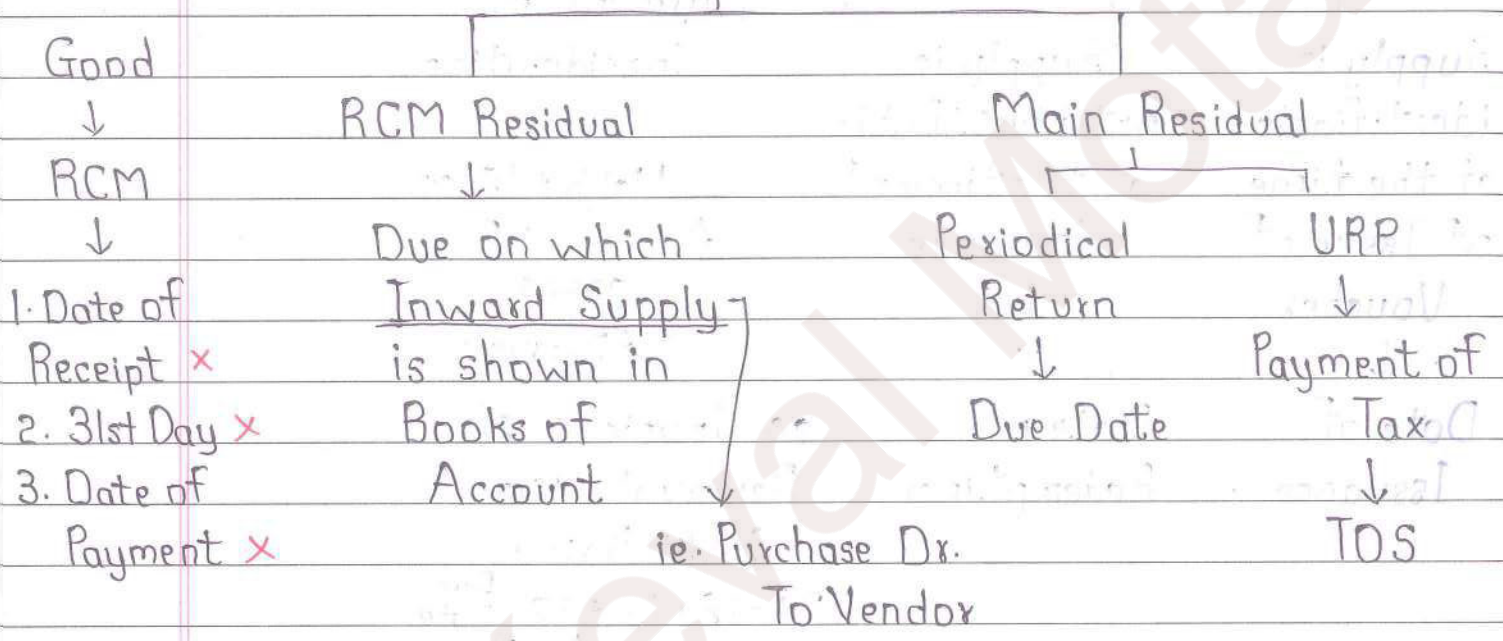 Good
↓
RCM
↓
1. Date of
Receipt ×
2. 31st Day ×
3. Date of
Payment ×
RCM Residual
↓
Due on which
Inward Supply
is shown in
Books of
Account
ie. Purchase Dr.
To Vendor
Main Residual
Periodical
Return
↓
Due Date
URP
↓
Payment of
Tax
↓
TOS
Keval Mota